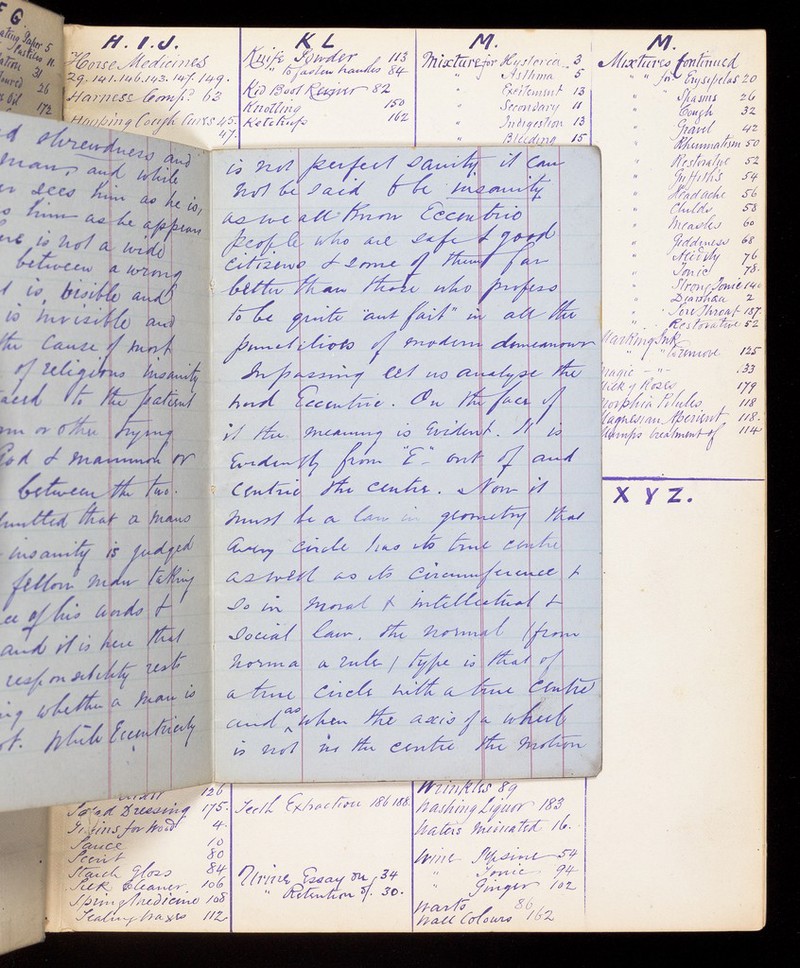 F G.
5
11
31
26
172
H. I. J.
Horse Medicines
29. 141. 146. 143. 147. 149.
Harness Comp. 63
Hooping Cough Cures 45.
47.
K L
Knife Powder 113
" to fasten handles 84
Kid Boot Reviver 82
Knotting 150
Ketchups 162
M.
Mixture for Hysteria 3
" Asthma 5
" Excitement 13
" Secondary 11
" Indigestion 13
" Bleeding 15
M.
Mixtures Continued
" " for Erysipelas 20
" Spasms 26
" Cough 32
" Gravel 42
" Rheumatism 50
" Restorative 52
" Griffith's 54
" Headache 56
" Childs 58
" Measles 60
" Giddiness 68
" Acidity 76
" Tonic 78.
" Strong Tonic 140
" Diarrhœa 2
" Sore Throat 137.
" Restorative 52
Marking Ink
" " to remove 125
Magic — " — 33
Milk of Roses 179
Morphia Pilules 118
Magnesian Aperient 118.
Mumps treatment of 114
X Y Z.
shrewdness and
man, and while
sees him as he is,
him as he appears
is not a wide
between a wrong
is visible and
is invisible and
the cause of most
of religious insanity
to the patient
or other trying
God & mammon or
between the two.
admitted that a mans
insanity is judged
fellow man taking
of his words &
and it is here that
responsibility rests
whether a man is
While Eccentricity
is not perfect sanity it can
not be said to be insanity
as we all know Eccentric
people who are safe & good
citizens & some of them far
better than those who profess
to be quite "aut fait" in all the
punctilios of modern demeanour
In passing let us analyse the
word Eccentric. On the face of
it the meaning is Evident. It is
Evidently from "E" out of and
centric the centre. Now it
must be a law in geometry that
every circle has its true centre
as well as its circumference &
so in moral & intellectual &
social law. the normal (from
norma a rule) type is that of
a true circle with a true centre
and as when the axis of a wheel
is not in the centre the motion
126
Salad Dressing 175.
for Wood 4.
Sauce 10
Scent 80
Starch Gloss 84
Silk Cleaner 106
Spring Medicine 108
Sealing Waxes 112
Teeth Extraction 186 188.
Urine Essay on 34
" Retention of. 30.
Wrinkles 89
Washing Liquor 183
Waters Medicated 16.
Wine Pepsine 54
" Tonic 94
" Ginger 102
Warts 86
Wall Colours 162